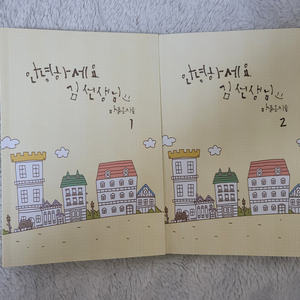 안녕하세요
김선생님
1
안녕하세요
김선생님
2